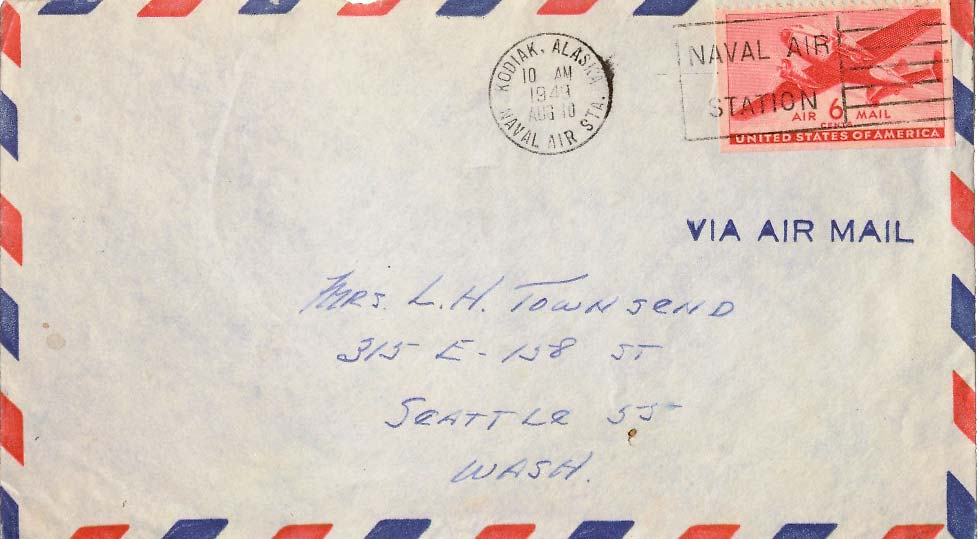 KODIAK, ALASKA
10 AM
1949
AUG 10
NAVAL AIR STA.
NAVAL AIR
STATION
AIR 6 MAIL
CENTS
UNITED STATES OF AMERICA
VIA AIR MAIL
Mrs. L. H. Townsend
315 E-158 ST
Seattle 55
WASH.